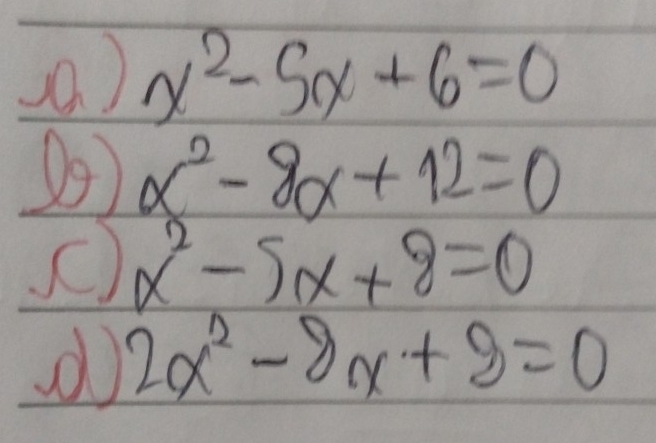 a) x² - 5x + 6 = 0
b) x² - 8x + 12 = 0
c) x² - 5x + 8 = 0
d) 2x² - 8x + 8 = 0